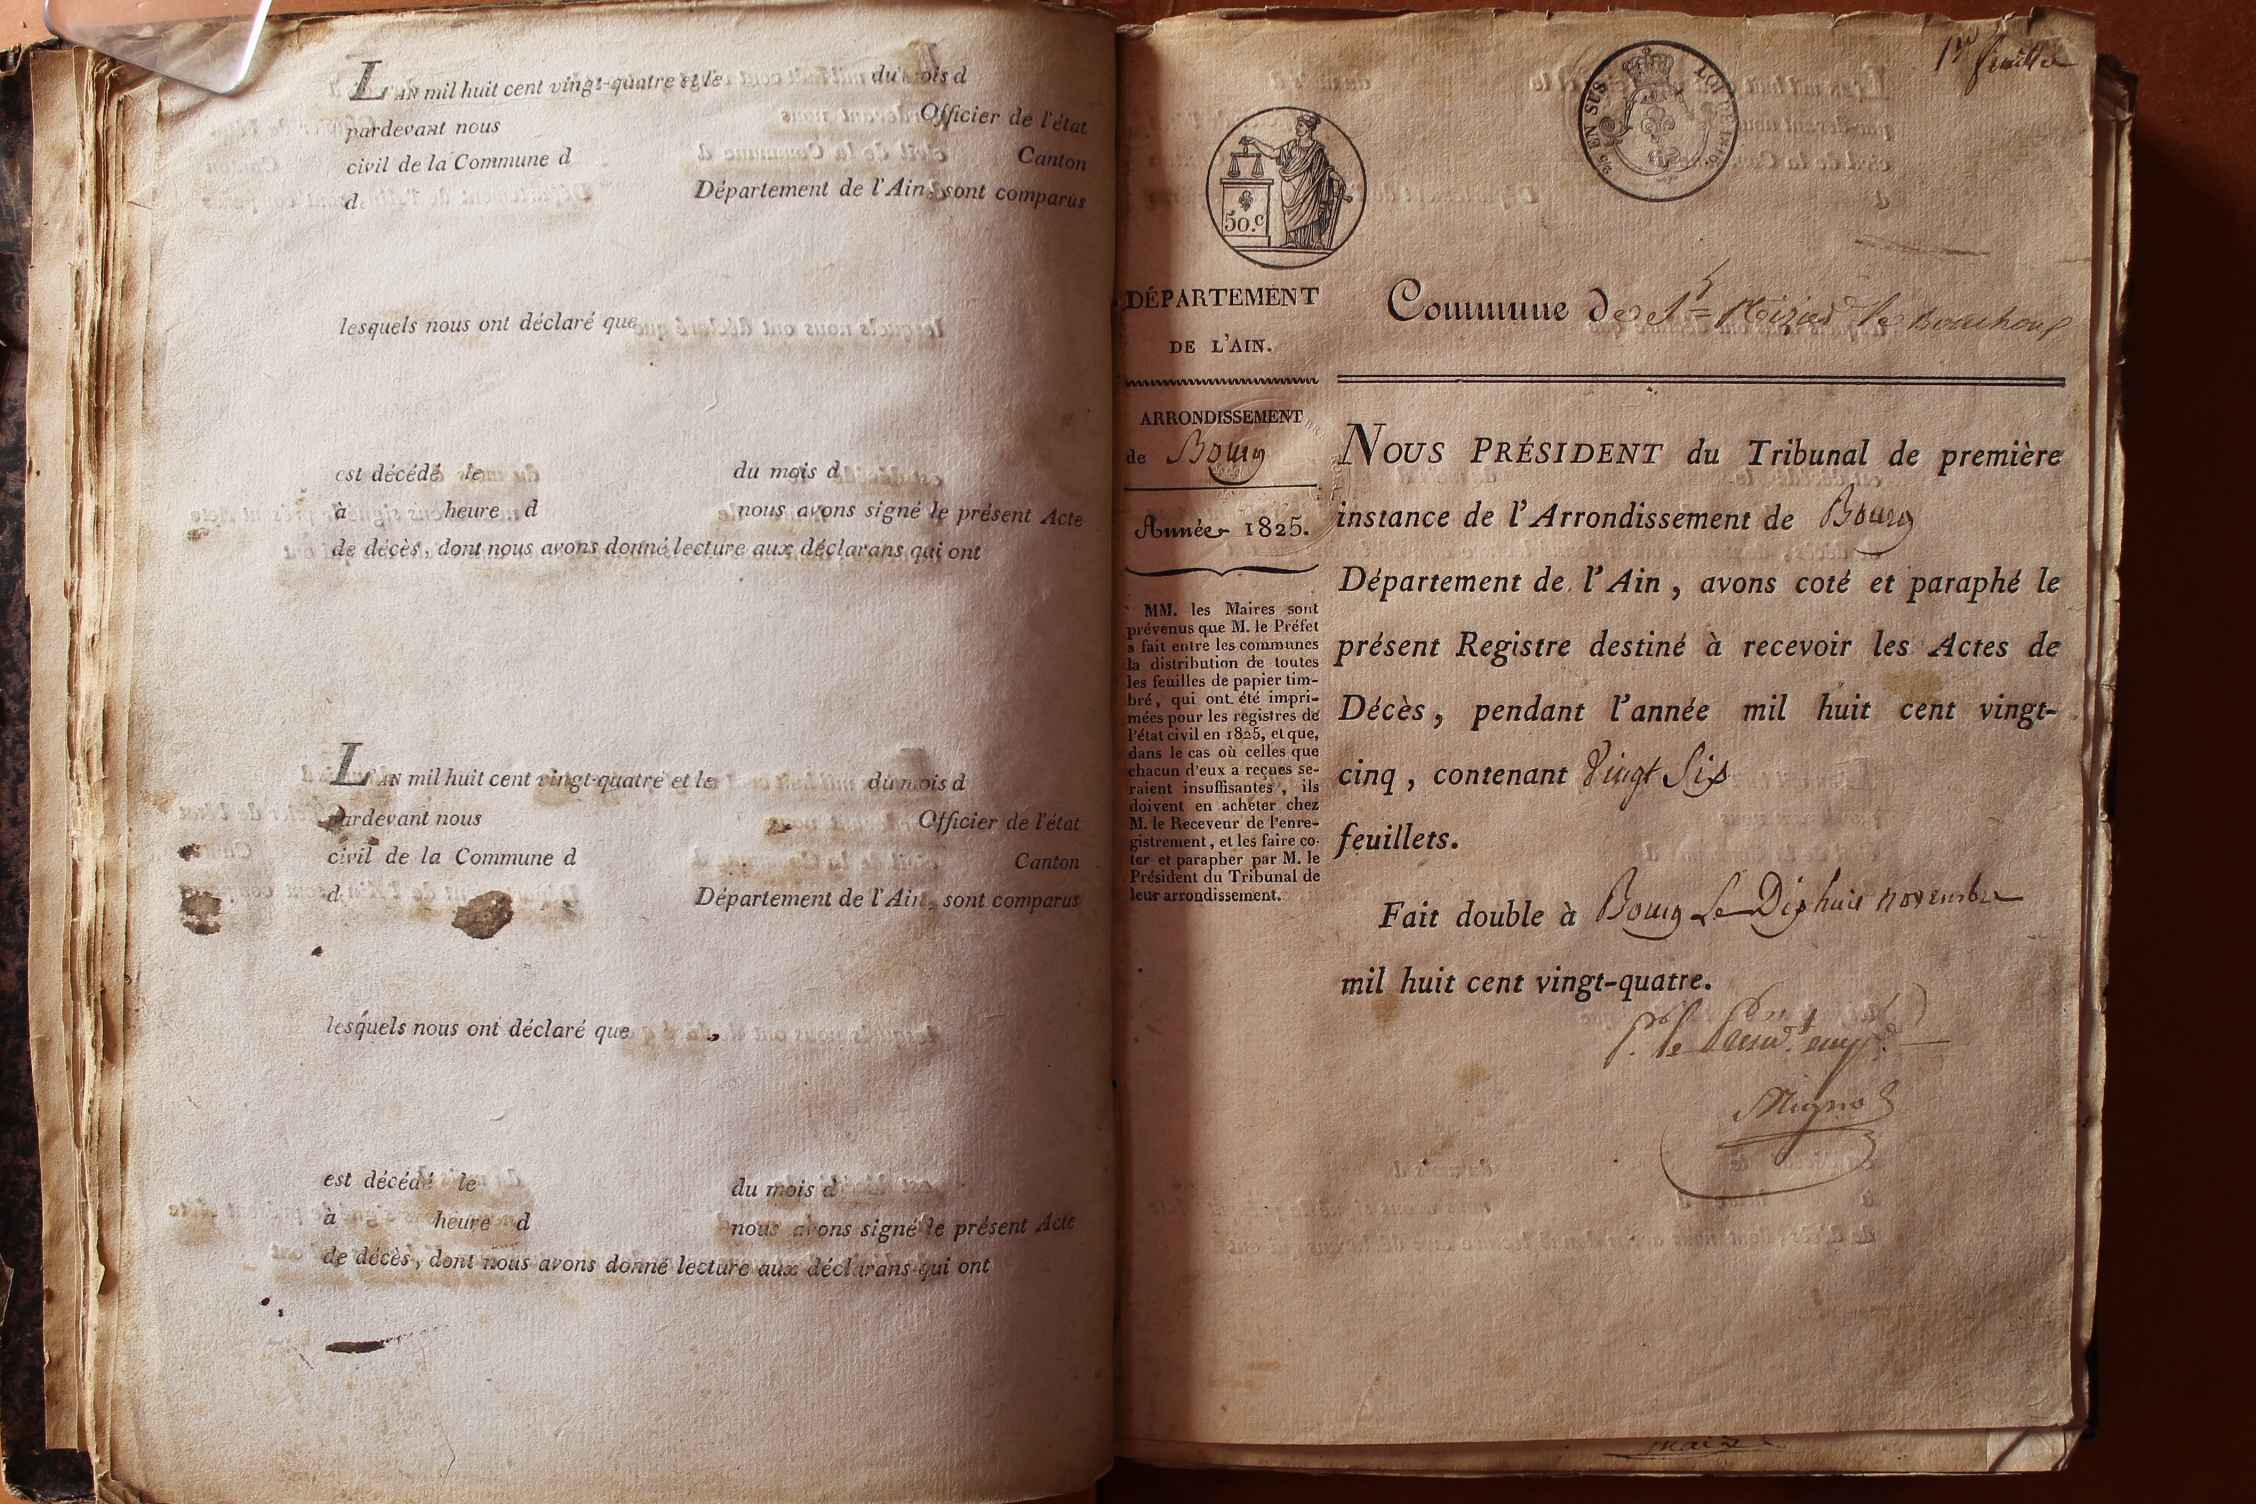 L'AN mil huit cent vingt-quatre et le du mois d
pardevant nous Officier de l'état
civil de la Commune d Canton
d Département de l'Ain, sont comparus
lesquels nous ont déclaré que
est décédé le du mois d
à heure d nous avons signé le présent Acte
de décès, dont nous avons donné lecture aux déclarans qui ont
L'AN mil huit cent vingt-quatre et le du mois d
pardevant nous Officier de l'état
civil de la Commune d Canton
d Département de l'Ain, sont comparus
lesquels nous ont déclaré que
est décédé le du mois d
à heure d nous avons signé le présent Acte
de décès, dont nous avons donné lecture aux déclarans qui ont
1er feuillet
EN SUS
LOI DE 1816
50.c
DÉPARTEMENT
DE L'AIN.
ARRONDISSEMENT
de Bourg
Année 1825.
MM. les Maires sont
prévenus que M. le Préfet
a fait entre les communes
la distribution de toutes
les feuilles de papier tim-
bré, qui ont été impri-
mées pour les registres de
l'état civil en 1825, et que,
dans le cas où celles que
chacun d'eux a reçues se-
raient insuffisantes, ils
doivent en acheter chez
M. le Receveur de l'enre-
gistrement, et les faire co-
ter et parapher par M. le
Président du Tribunal de
leur arrondissement.
Commune de St Nizier le Bouchoux
NOUS PRÉSIDENT du Tribunal de première
instance de l'Arrondissement de Bourg
Département de l'Ain, avons coté et paraphé le
présent Registre destiné à recevoir les Actes de
Décès, pendant l'année mil huit cent vingt-
cinq, contenant Vingt Six
feuillets.
Fait double à Bourg Le Dix huit novembre
mil huit cent vingt-quatre.
P. le Présidt